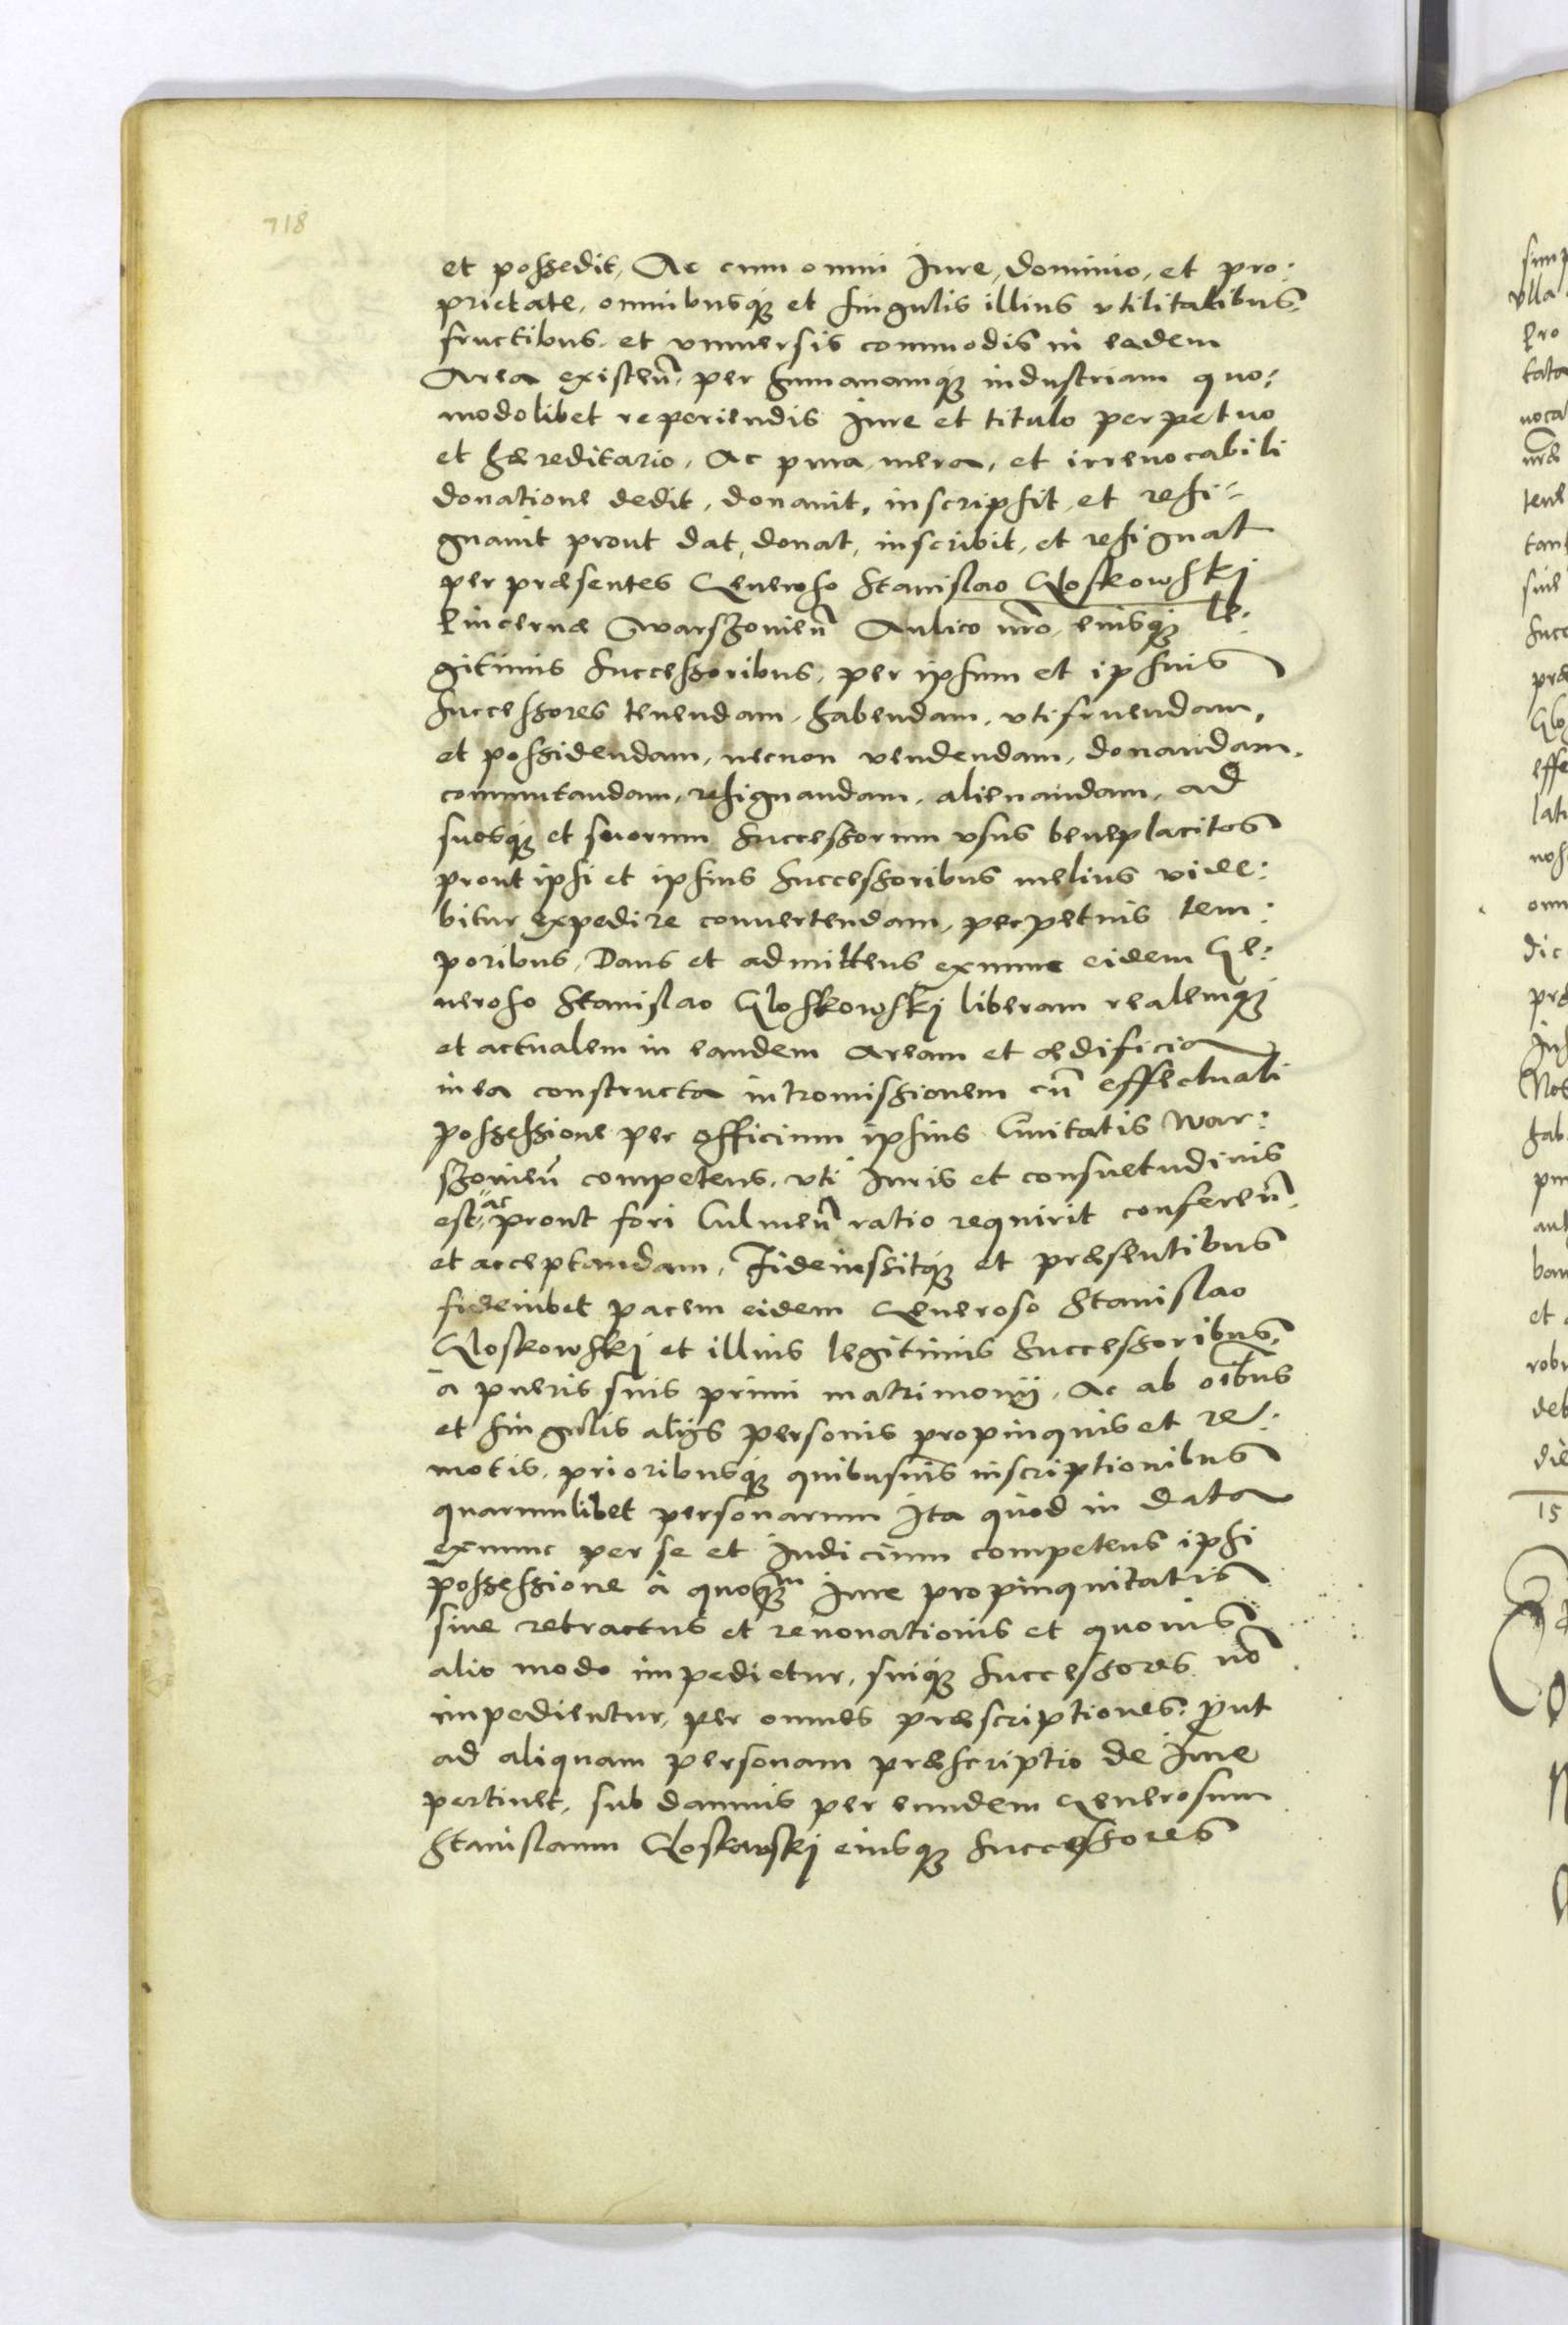 718
et possedit, Ac cum omni Jure, dominio, et pro:
prietate, omnibusq́ue et singulis illius vtilitatibus,
fructibus, et vniuersis commodis in eadem
Area existeñ, per humanamq́ue industriam quo:
modolibet reperiendis Jure et titulo perpetuo
et hæreditario, Ac pura, mera, et irreuocabili
donatione dedit, donauit, inscripsit, et resi:
gnauit prout dat, donat, inscribit, et resignat
per præsentes Generoso Stanislao Gloskowskj
Pincernæ Warszouieñ Aulico nr̃o, eiusq́ue le:
gitimis Successoribus, per ipsum et ipsius
Successores tenendam, habendam, vtifruendam,
et possidendam, necnon vendendam, donandam,
commutandam, resignandam, alienandam, ad
suosq́ue et suorum Successorum vsus beneplacitos
prout ipsi et ipsius Successoribus melius vide:
bitur expedire conuertendam, perpetuis tem:
poribus, Dans et admittens exnunc eidem Ge:
neroso Stanislao Gloskowskj liberam realemq́ue
et actualem in eandem Aream et ædificia
in ea constructa intromissionem cũ effectuali
possessione per officium ipsius Ciuitatis War:
szouieñ competens, vti Juris et consuetudinis
est, ac prout fori Culmeñ ratio requirit confereñ
et acceptandam, Fideiussitq́ue et præsentibus
fideiubet pacem eidem Generoso Stanislao
Gloskowskj et illius legitimis Successoribus,
à pueris suis primi matrimonij, Ac ab oĩbus
et singulis alijs personis propinquis et re:
motis, prioribusq́ue quibusuis inscriptionibus
quarumlibet personarum Ita quòd in data
exnunc per se et Judicium competens ipsi
possessione à quoq̃m Jure propinquitatis
siue retractus et renouationis et quouis
alio modo impedietur, suiq́ue Successores nõ
impedientur, per omnes præscriptiones, pr̃ut
ad aliquam personam præscriptio de Jure
pertinet, sub damnis per eundem Generosum
Stanislaum Gloskowskj eiusq́ue Successores